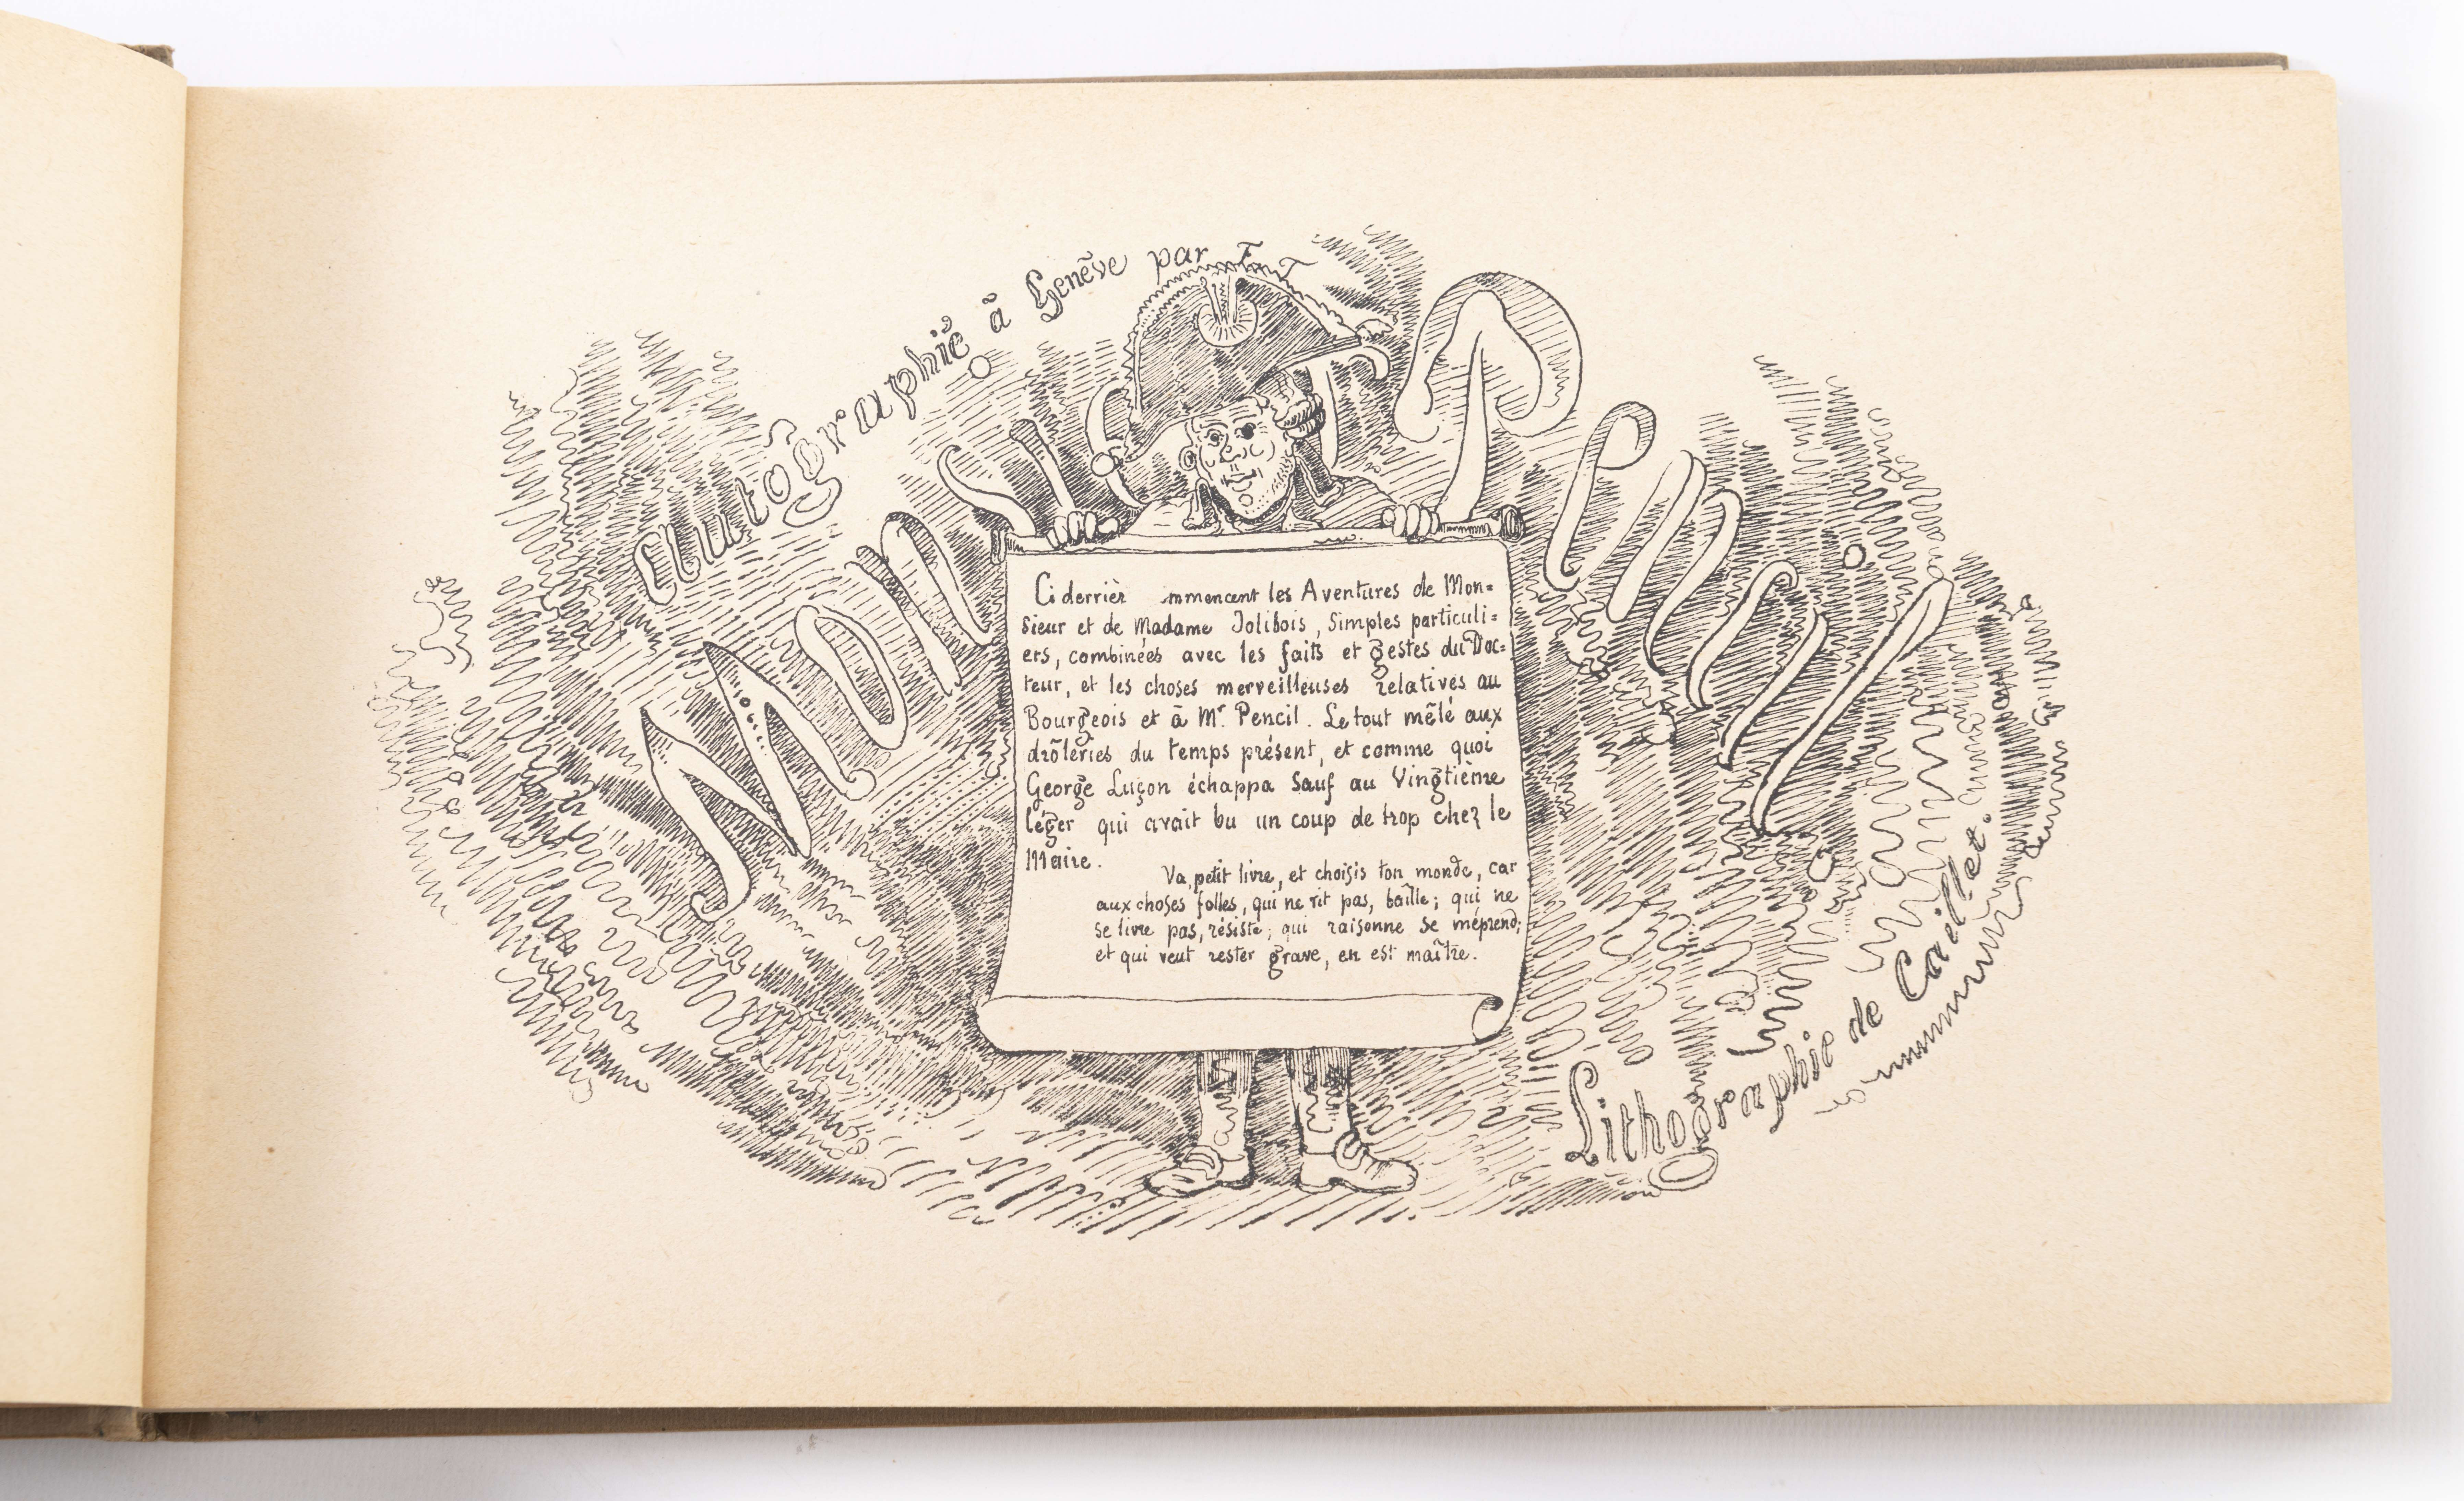 Autographié à Genève par
Monsieur Pencil
Ci derrièr mmencent les Aventures de Mon=
sieur et de Madame Jolibois, Simples particuli=
ers, combinées avec les faits et gestes du Doc=
teur, et les choses merveilleuses relatives au
Bourgeois et à Mr. Pencil. Le tout mêlé aux
drôleries du temps présent, et comme quoi
George Luçon échappa Sauf au Vingtième
léger qui avait bu un coup de trop chez le
Maire.
Va, petit livre, et choisis ton monde, car
aux choses folles, qui ne rit pas, baîlle; qui ne
se livre pas, résiste; qui raisonne se méprend;
et qui veut rester grave, en est maître.
Lithographie de Caillet.